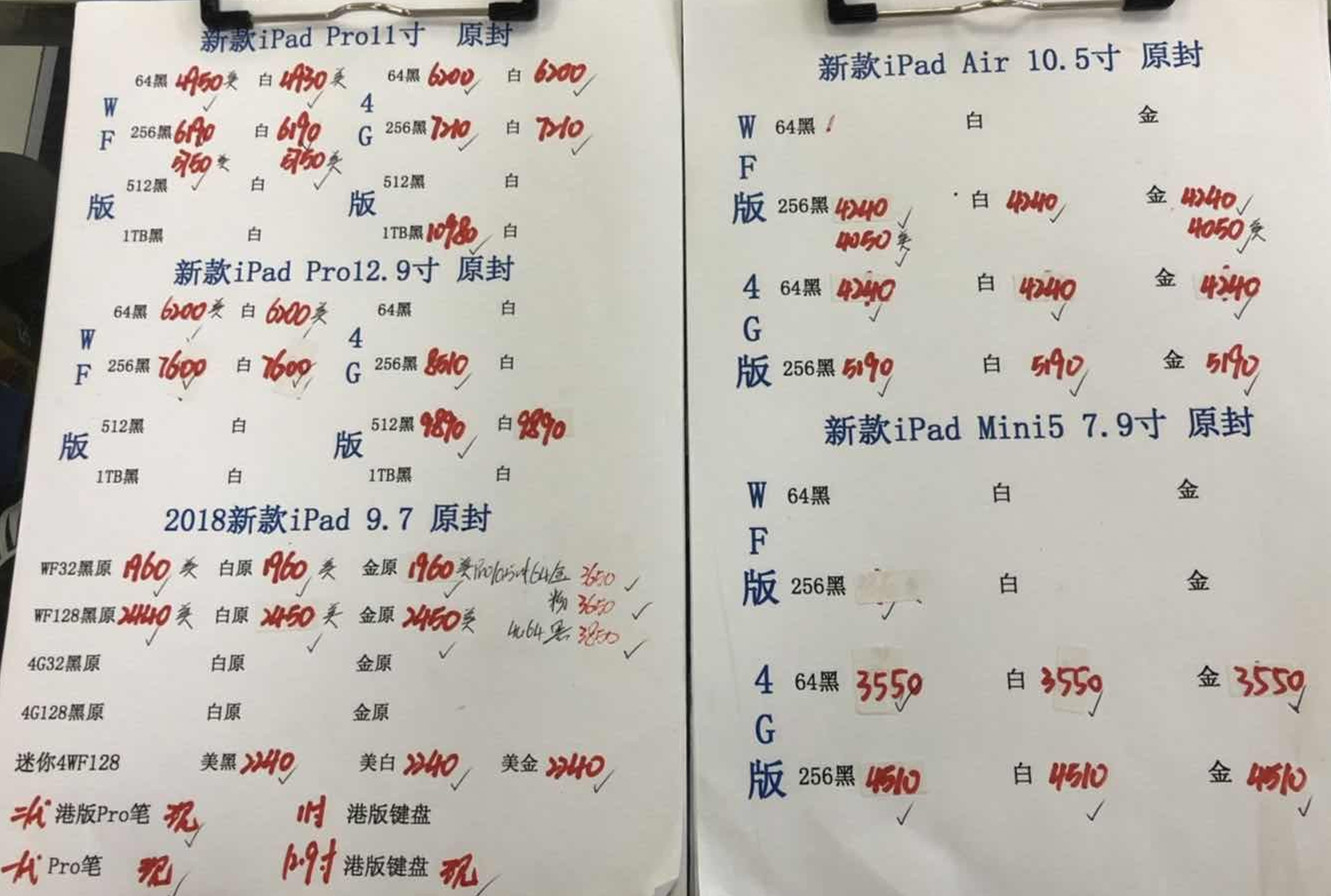 新款iPad Pro11寸 原封
64黑 4950美 白 4930美 64黑 6200 白 6200
WF版 4G版
256黑 6190 白 6190 256黑 7210 白 7210
5750美 5750美
512黑 白 512黑 白
1TB黑 白 1TB黑 10980 白
新款iPad Pro12.9寸 原封
64黑 6200美 白 6200美 64黑 白
WF版 4G版
256黑 7600 白 7600 256黑 8510 白
512黑 白 512黑 9890 白 9890
1TB黑 白 1TB黑 白
2018新款iPad 9.7 原封
WF32黑原 1960美 白原 1960美 金原 1960美 Pro10.5寸64金 3650
粉 3650
WF128黑原 2440美 白原 2450美 金原 2450美
4G64黑 3850
4G32黑原 白原 金原
4G128黑原 白原 金原
迷你4WF128 美黑 2240 美白 2240 美金 2240
二代 港版Pro笔 现 11寸 港版键盘
一代 Pro笔 现 12.9寸 港版键盘 现
新款iPad Air 10.5寸 原封
WF版
64黑 白 金
256黑 4240 白 4240 金 4240
4050美 4050美
4G版
64黑 4240 白 4240 金 4240
256黑 5190 白 5190 金 5190
新款iPad Mini5 7.9寸 原封
WF版
64黑 白 金
256黑 白 金
4G版
64黑 3550 白 3550 金 3550
256黑 4510 白 4510 金 4510